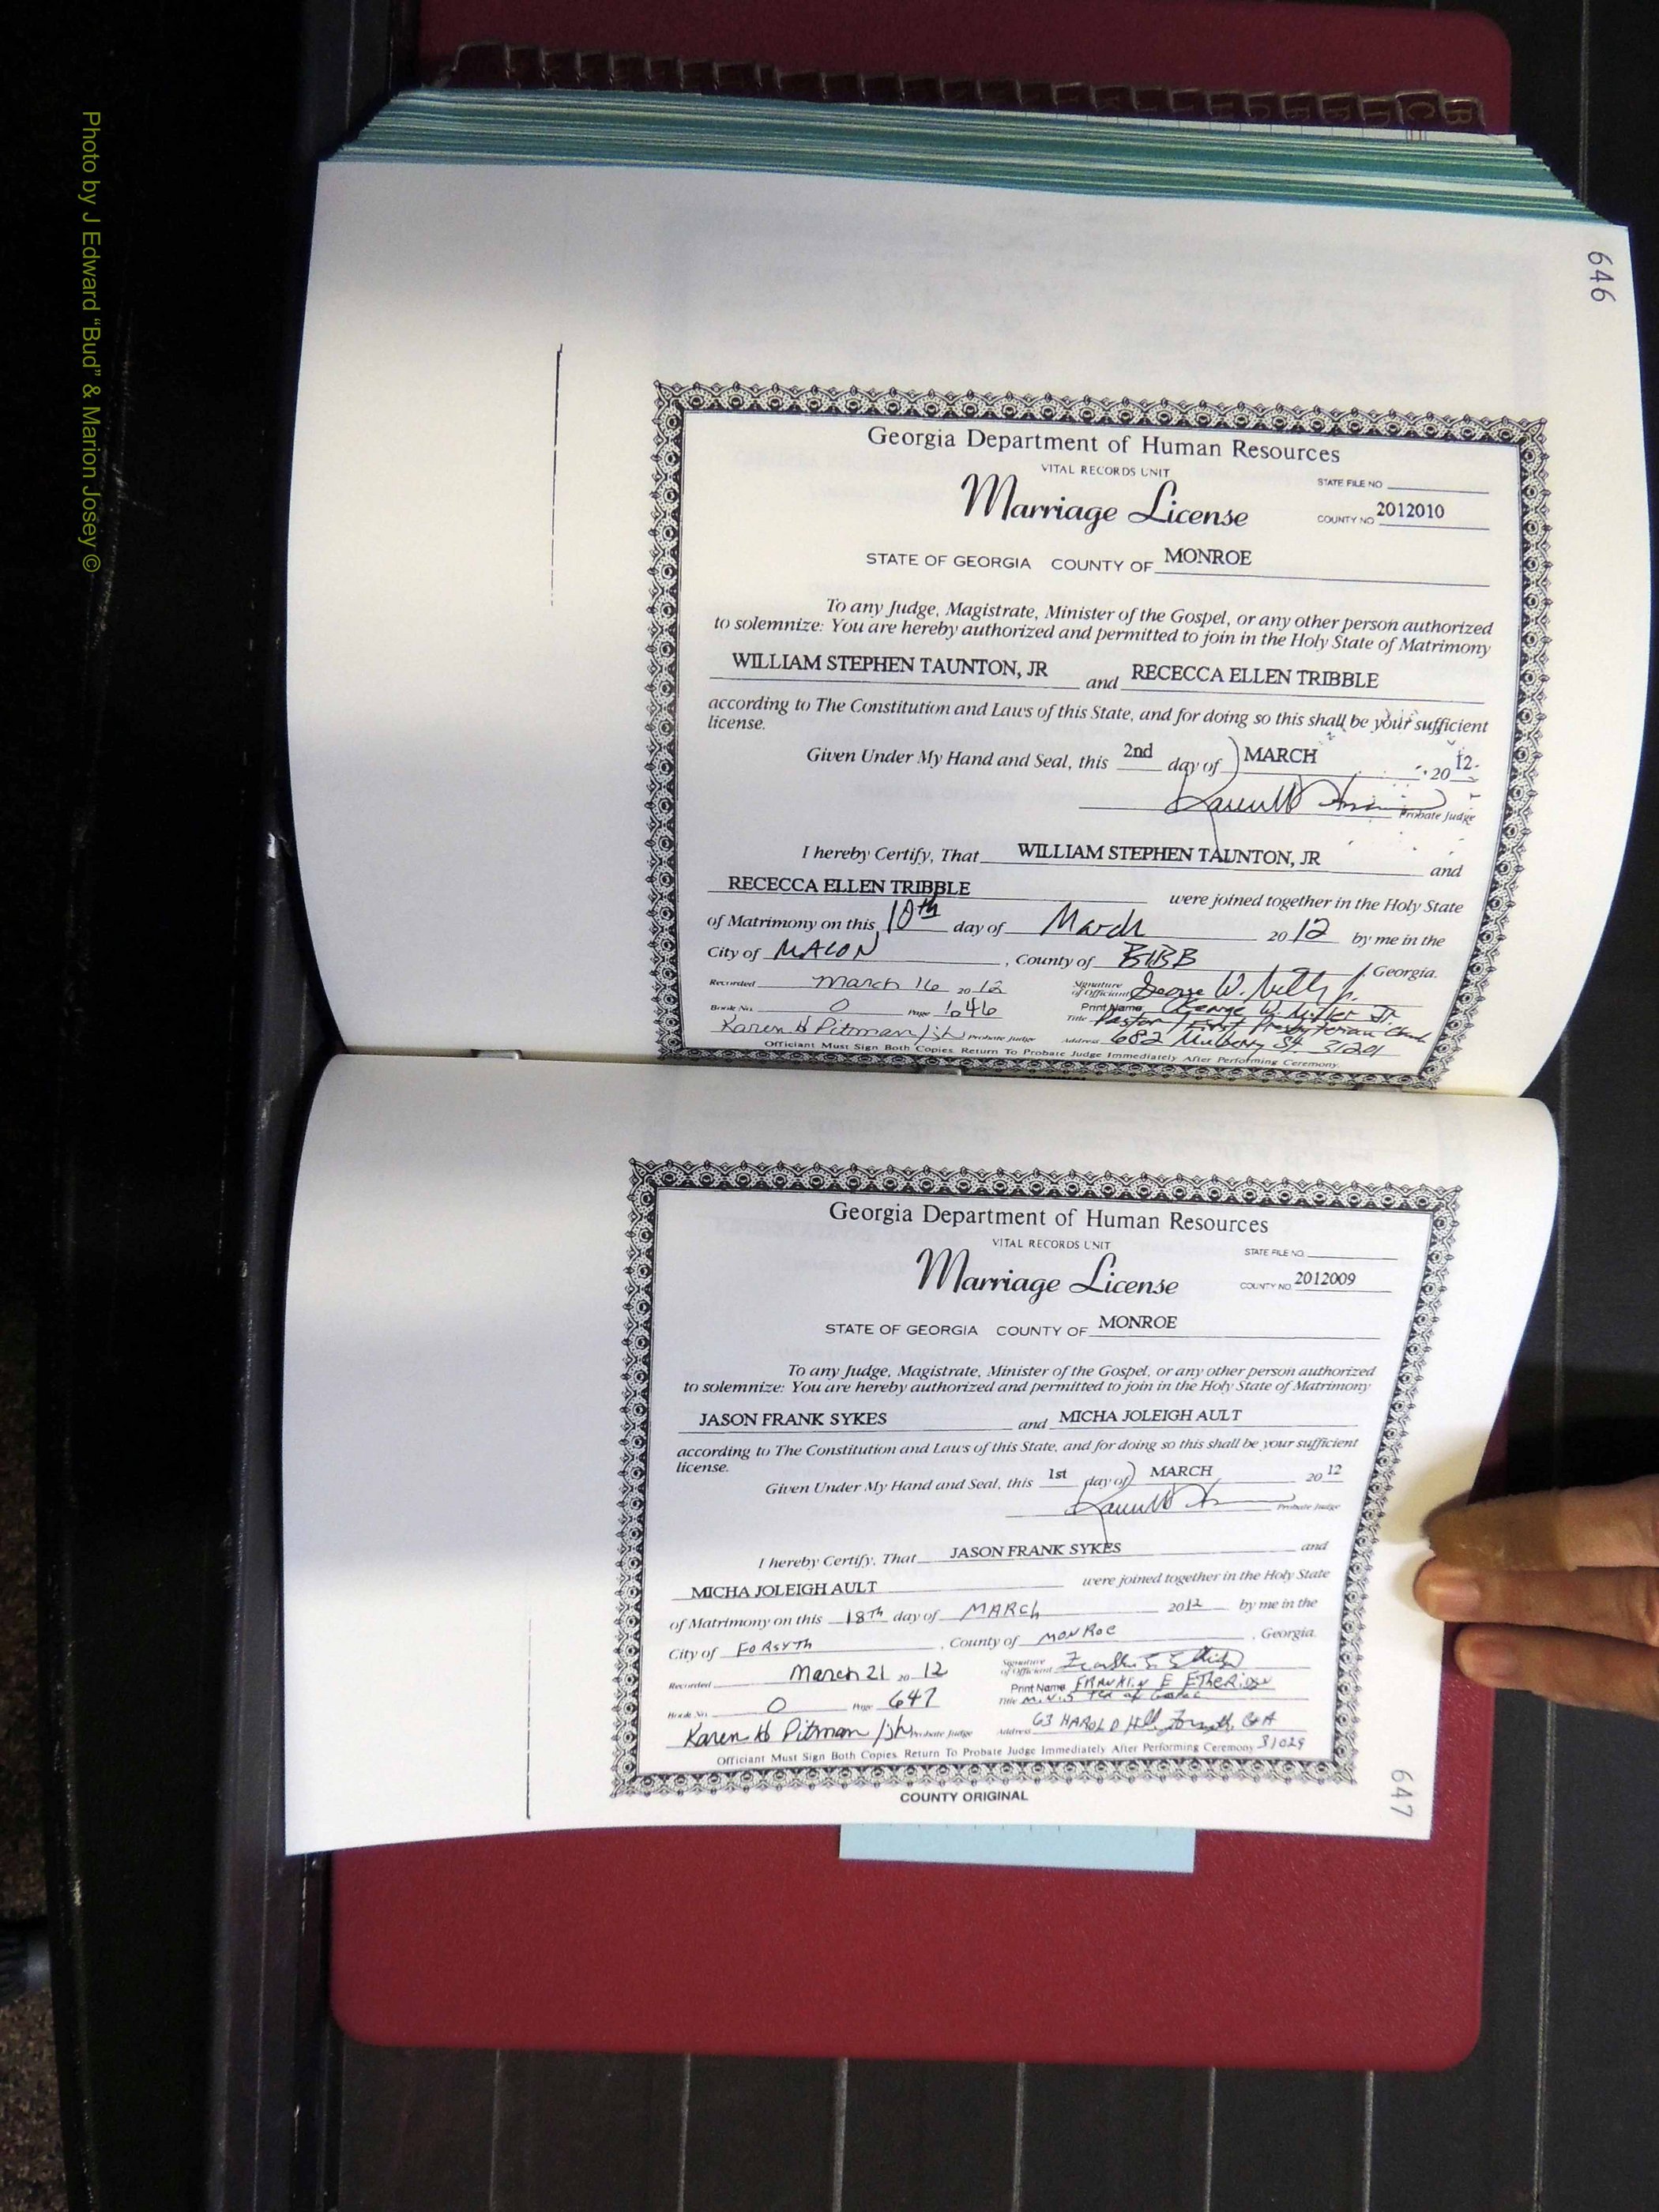 Photo by J Edward "Bud" & Marion Josey ©
646
Georgia Department of Human Resources
VITAL RECORDS UNIT
STATE FILE NO
Marriage License
COUNTY NO 2012010
STATE OF GEORGIA COUNTY OF MONROE
To any Judge, Magistrate, Minister of the Gospel, or any other person authorized
to solemnize: You are hereby authorized and permitted to join in the Holy State of Matrimony
WILLIAM STEPHEN TAUNTON, JR and RECECCA ELLEN TRIBBLE
according to The Constitution and Laws of this State, and for doing so this shall be your sufficient
license.
Given Under My Hand and Seal, this 2nd day of MARCH 20 12
Probate Judge
I hereby Certify, That WILLIAM STEPHEN TAUNTON, JR and
RECECCA ELLEN TRIBBLE were joined together in the Holy State
of Matrimony on this 10th day of March 20 12 by me in the
City of MACON, County of BIBB, Georgia.
Recorded March 16 20 12 Signature of Officiant George W.
Book No. O Page 646 Print Name George W. Jr.
Karen H Pitman /jh Probate Judge Title Pastor / First Presbyterian Church
Address 682 Mulberry St. 31201
Officiant Must Sign Both Copies. Return To Probate Judge Immediately After Performing Ceremony.
Georgia Department of Human Resources
VITAL RECORDS UNIT
STATE FILE NO
Marriage License
COUNTY NO 2012009
STATE OF GEORGIA COUNTY OF MONROE
To any Judge, Magistrate, Minister of the Gospel, or any other person authorized
to solemnize: You are hereby authorized and permitted to join in the Holy State of Matrimony
JASON FRANK SYKES and MICHA JOLEIGH AULT
according to The Constitution and Laws of this State, and for doing so this shall be your sufficient
license.
Given Under My Hand and Seal, this 1st day of MARCH 20 12
Probate Judge
I hereby Certify, That JASON FRANK SYKES and
MICHA JOLEIGH AULT were joined together in the Holy State
of Matrimony on this 18TH day of MARCH 2012 by me in the
City of FORSYTH, County of MONROE, Georgia.
Recorded March 21 20 12 Signature of Officiant
Book No. O Page 647 Print Name FRANKLIN E ETHERIDGE
Title
Karen H Pitman /jh Probate Judge Address 63 HAROLD Hill, Forsyth, GA
Officiant Must Sign Both Copies. Return To Probate Judge Immediately After Performing Ceremony 31029
COUNTY ORIGINAL
647